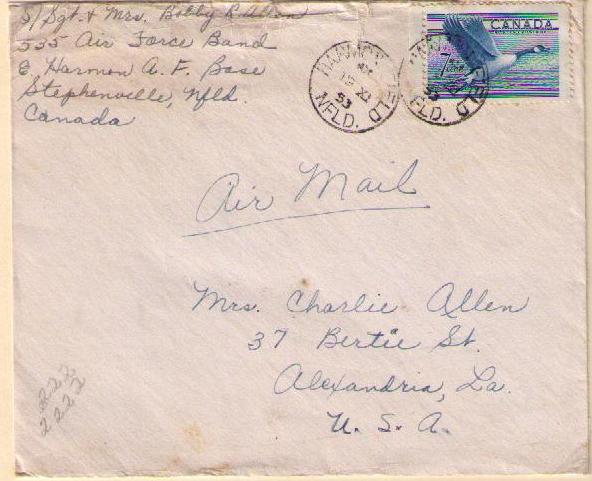 S/Sgt. & Mrs. Bobby R. Alton
535 Air Force Band
E Harmon A. F. Base
Stephenville, Nfld.
Canada
CANADA
HARMON FIELD
53
NFLD.
FIELD
53
NFLD.
Air Mail
Mrs. Charlie Allen
37 Bertie St.
Alexandria, La.
U. S. A.
222
2222